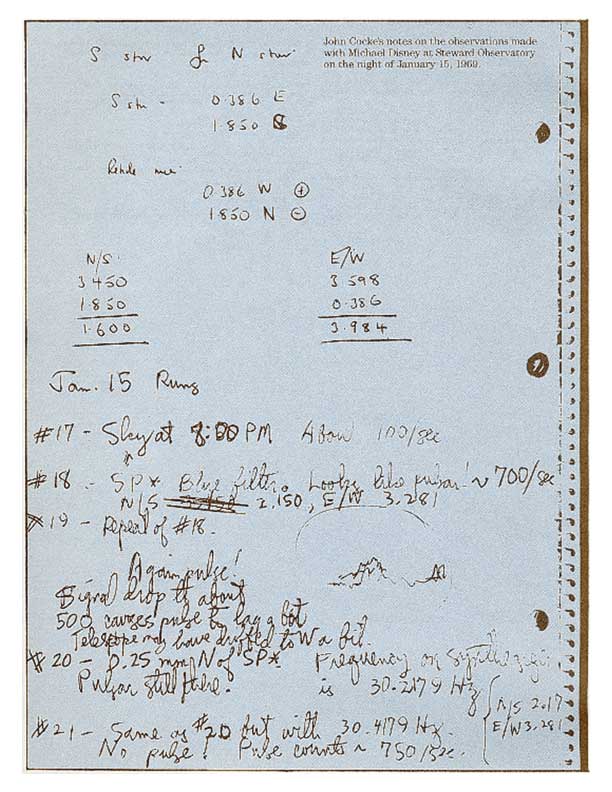 John Cocke's notes on the observations made
with Michael Disney at Steward Observatory
on the night of January 15, 1969.
S star N star
S star - 0.386 E
1.850 S
me
0.386 W ⊕
1.850 N ⊖
N/S E/W
3.450 3.598
1.850 0.386
1.600 3.984
Jan. 15 Runs
#17 - Sky at 8:00 PM About 100/sec
#18 - SP* Blue filter. Looks like pulsar! ~ 700/sec
N/S 2.150, E/W 3.281
#19 - Repeat of #18.
Again pulse!
Signal drop to about
500 causes pulse to lag a bit
Telescope may have drifted to W a bit.
#20 - 0.25 mm N of SP* Frequency on
Pulsar still there. is 30.2179 Hz
N/S 2.17
E/W 3.281
#21 - Same as #20 but with 30.4179 Hz.
No pulse! Pulse counts ~ 750/sec.